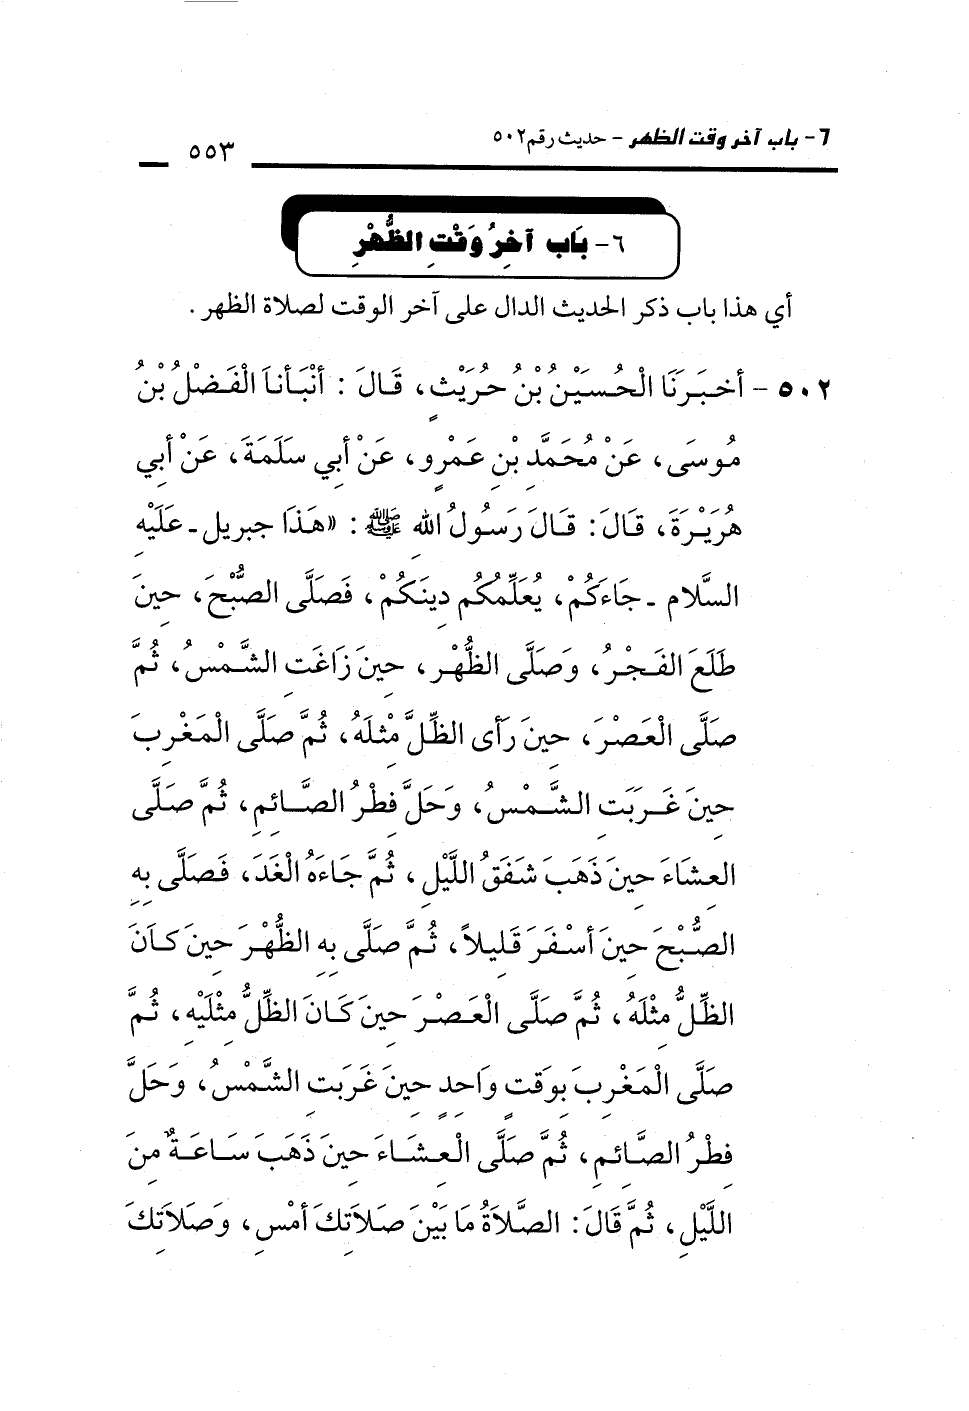 ٦- باب آخر وقت الظهر - حديث رقم ٥٠٢
٥٥٣
٦- بَاب آخِرُ وَقْتِ الظُّهْرِ
أي هذا باب ذكر الحديث الدال على آخر الوقت لصلاة الظهر .
٥٠٢ - أخبَرَنَا الْحُسَيْنُ بْنُ حُرَيْثٍ، قَالَ : أنْبَأناَ الْفَضْلُ بْنُ
مُوسَى، عَنْ مُحَمَّدِ بْنِ عَمْرٍو، عَنْ أبِي سَلَمَةَ، عَنْ أبِي
هُرَيْرَةَ، قَالَ: قَالَ رَسُولُ الله ﷺ : «هَذَا جبريل ـ عَلَيْهِ
السَّلام ـ جَاءَكُمْ، يُعَلِّمُكُم دِينَكُمْ، فَصَلَّى الصُّبْحَ، حِينَ
طَلَعَ الفَجْرُ، وَصَلَّى الظُّهْرِ، حِينَ زَاغَتِ الشَّمْسُ، ثُمَّ
صَلَّى الْعَصْرَ، حِينَ رَأى الظِّلَّ مِثْلَهُ، ثُمَّ صَلَّى الْمَغْرِبَ
حِينَ غَرَبَتِ الشَّمْسُ، وَحَلَّ فِطْرُ الصَّائِمِ، ثُمَّ صَلَّى
العِشَاءَ حِينَ ذَهَبَ شَفَقُ اللَّيْلِ، ثُمَّ جَاءَهُ الْغَدَ، فَصَلَّى بِهِ
الصُّبْحَ حِينَ أسْفَرَ قَلِيلاً، ثُمَّ صَلَّى بِهِ الظُّهْرَ حِينَ كَانَ
الظِّلُّ مِثْلَهُ، ثُمَّ صَلَّى الْعَصْرَ حِينَ كَانَ الظِّلُّ مِثْلَيْهِ، ثُمَّ
صَلَّى الْمَغْرِبَ بِوَقتٍ وَاحِدٍ حِينَ غَرَبَتِ الشَّمْسُ، وَحَلَّ
فِطْرُ الصَّائِمِ، ثُمَّ صَلَّى الْعِشَاءَ حِينَ ذَهَبَ سَاعَةٌ مِنَ
اللَّيْلِ، ثُمَّ قَالَ: الصَّلاَةُ مَا بَيْنَ صَلاَتِكَ أمْسِ، وَصَلاَتِكَ